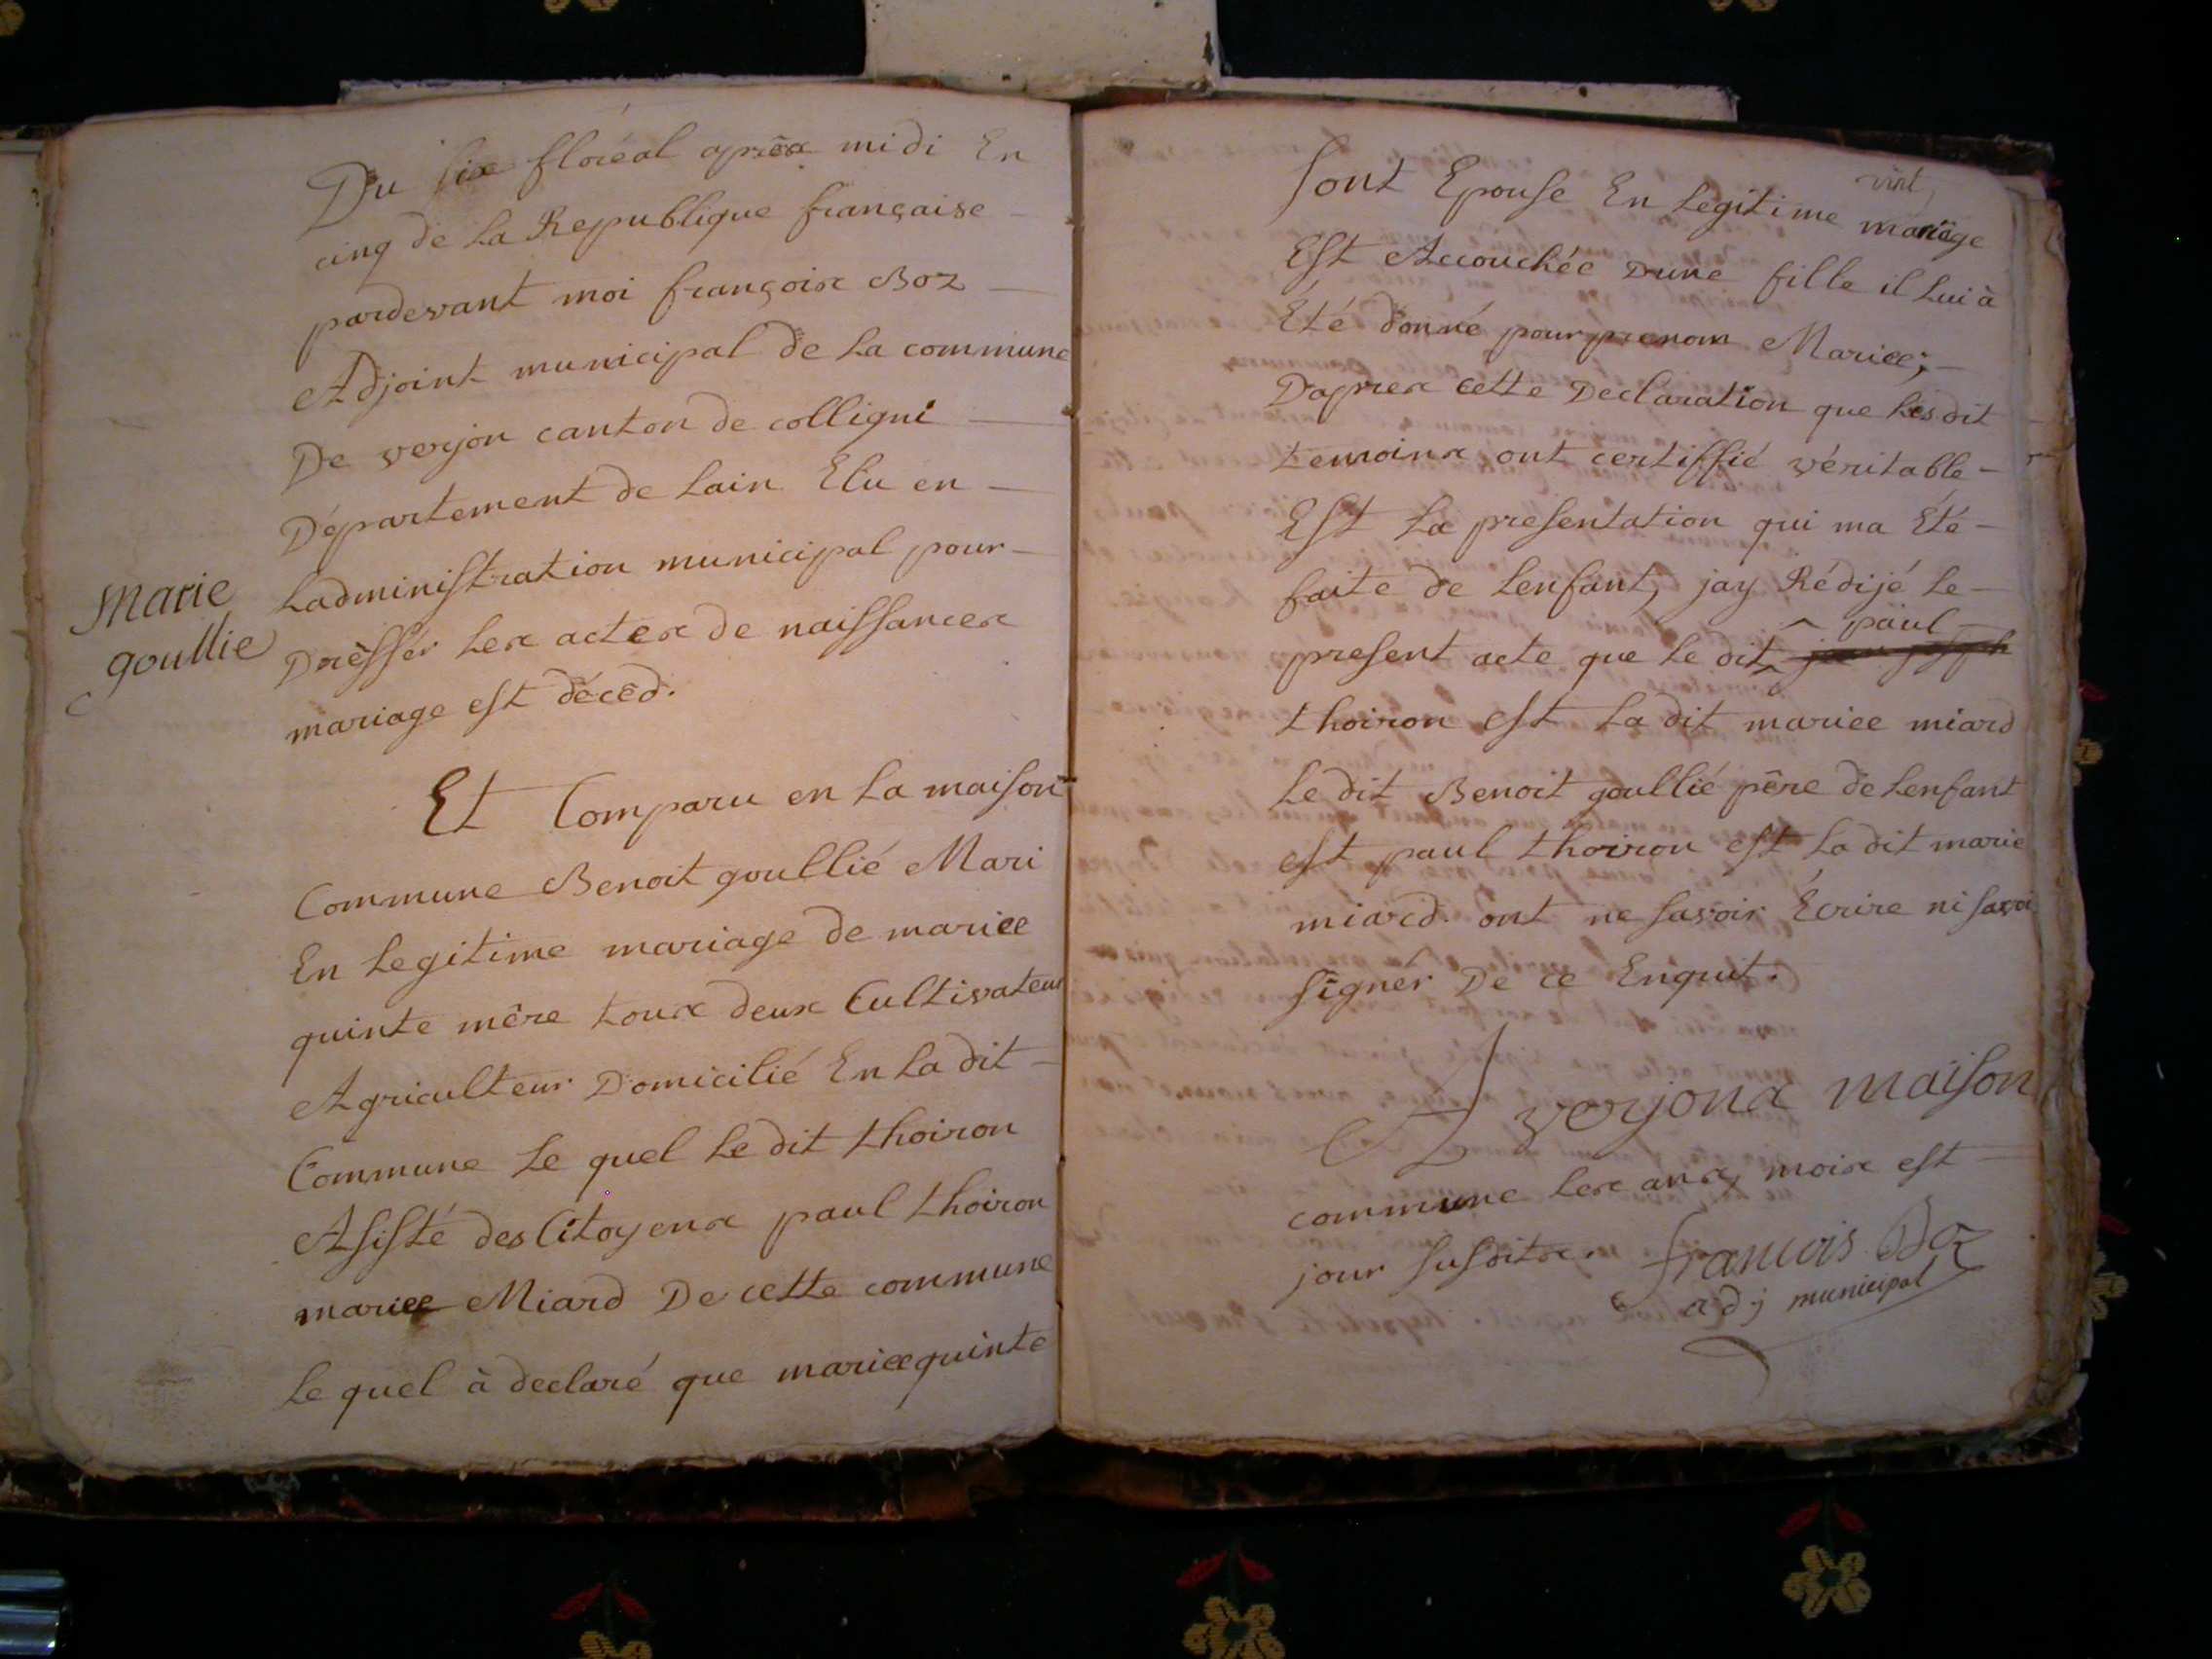 Du six floréal après midi En
cinq de La Republique française
pardevant moi françois Boz
Adjoint municipal de La commune
De verjon canton de colligni
Département de Lain Elu en
Ladministration municipal pour
Drèssér Les actes de naissances
mariage est décèd.
Marie
goullie
Et Comparu en La maison
Commune Benoit goullié Mari
En Legitime mariage de mariee
quinte mêre tous deux Cultivateur
Agriculteur Domicilié En La dit
Commune Le quel Le dit thoiron
Asisté des Citoyens paul thoiron
mariee Miard De cette commune
Le quel à declaré que mariee quinte
sont Epouse En Legitime mariage
Est Accouchée Dune fille il Lui à
Été donné pour prenom Mariee;
Daprés cette Declaration que Les dit
temoins ont certiffié véritable
Est La presentation qui ma Été
faite de Lenfant, jay Rédijé Le
paul
present acte que Le dit joseph
thoiron est La dit mariee miard
Le dit Benoit goullié pêre de Lenfant
est paul thoiron est La dit marie
miard. ont ne savoir Écrire ni savoi
signér De ce Enquit.
A verjons maison
commune Les ans, mois est
jour susdits. francois Boz
adj municipal